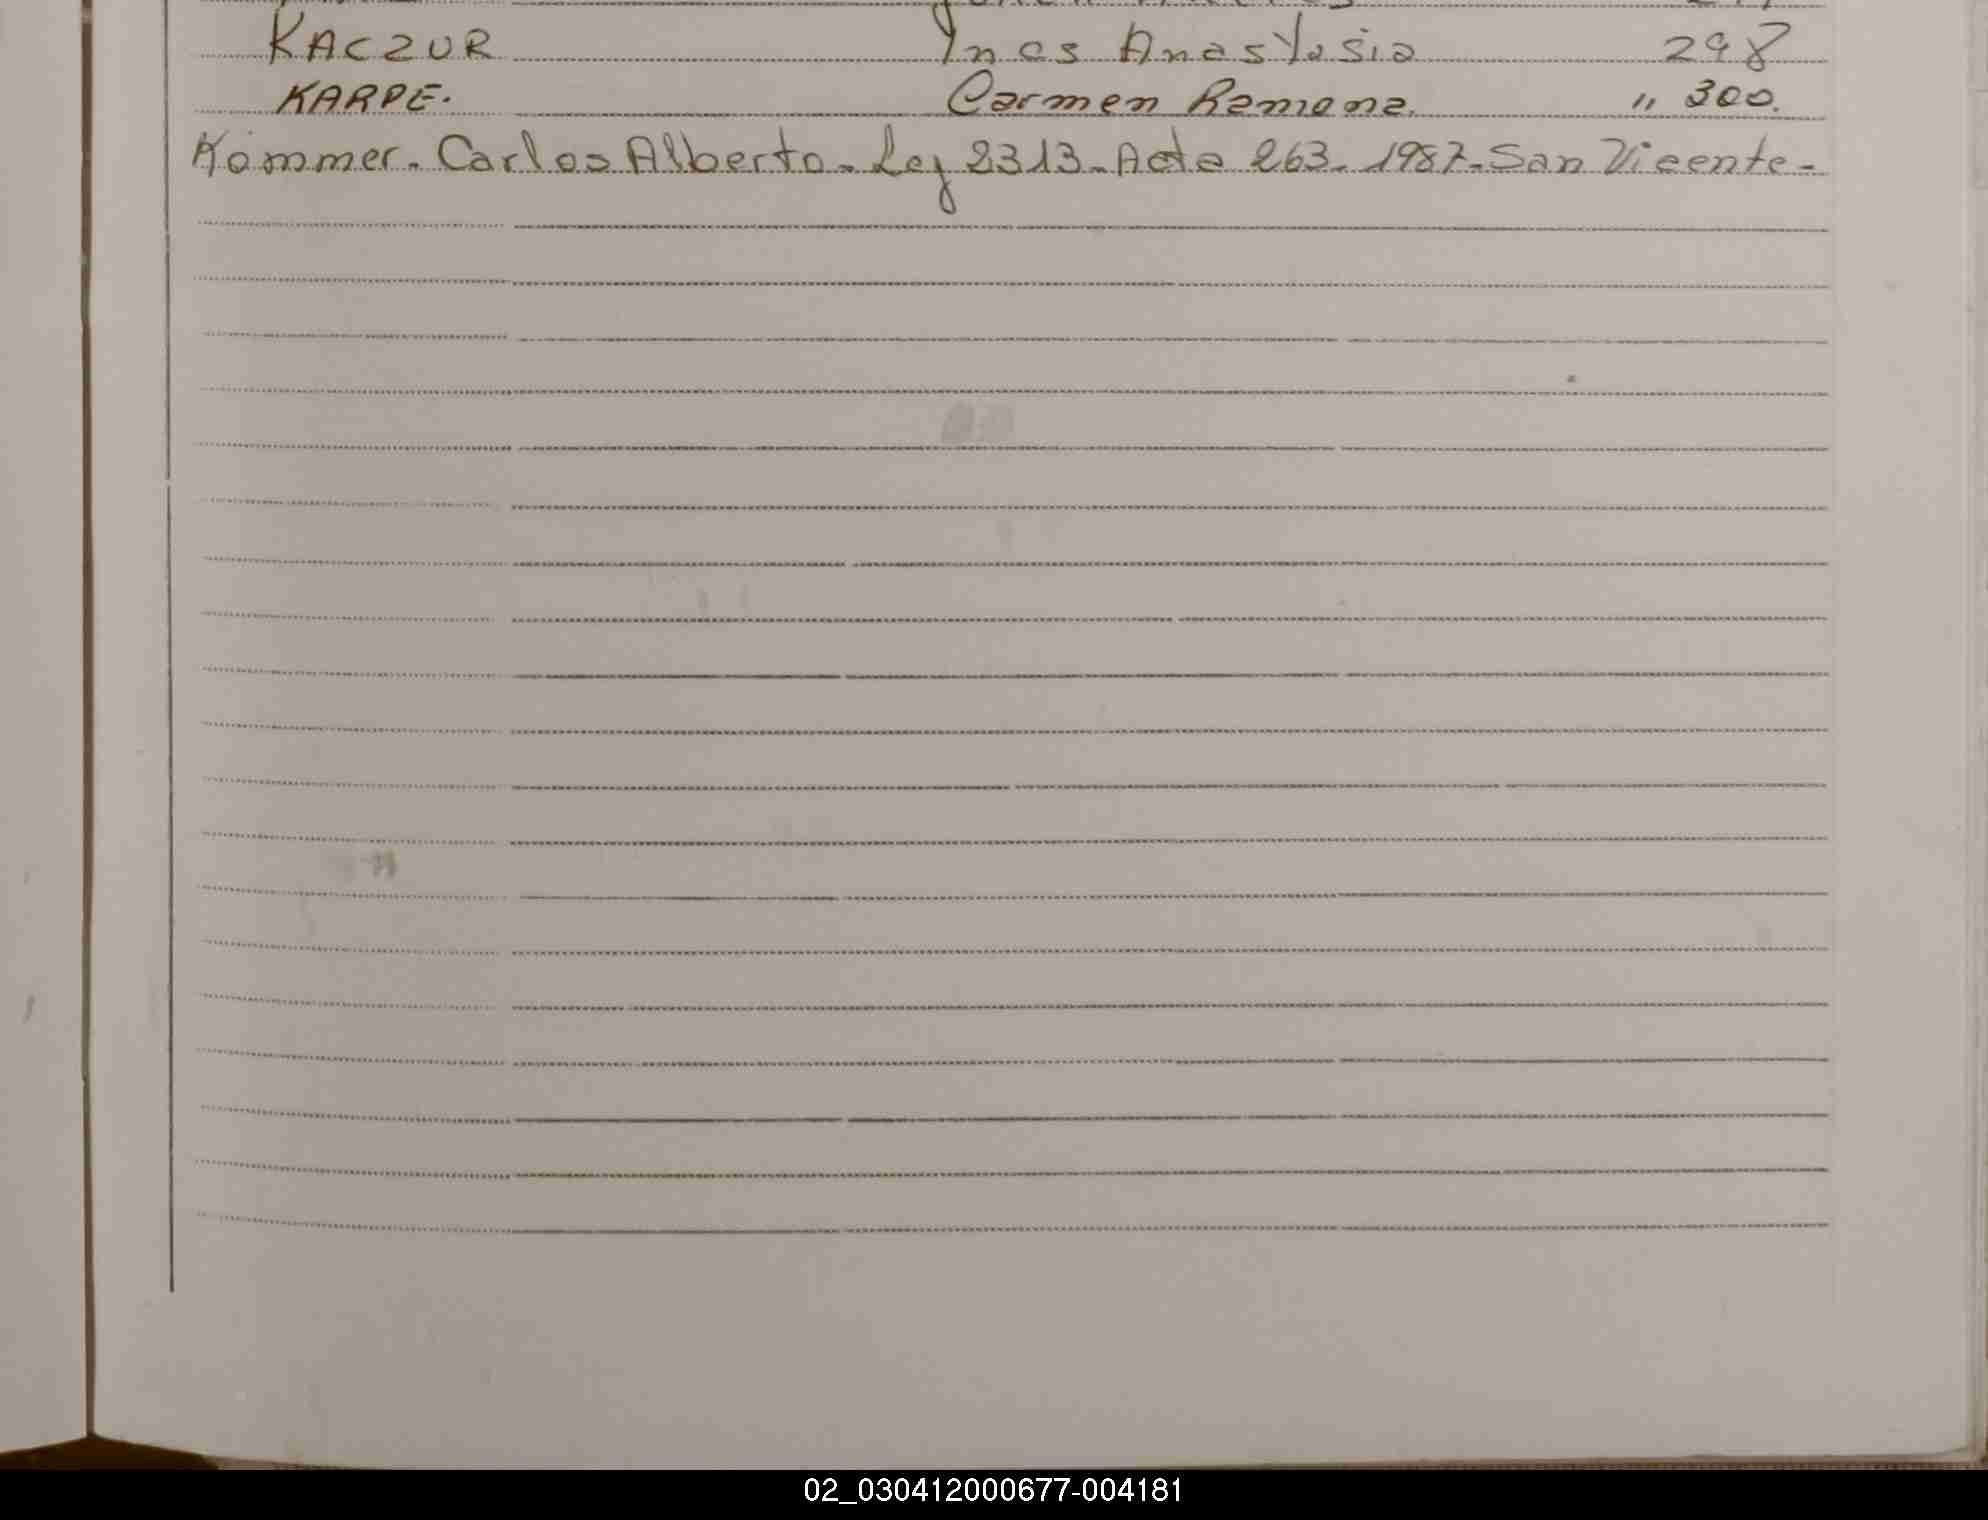 KACZUR Ynes Anastasia 298
KARPE. Carmen Ramona. " 300.
Kommer. Carlos Alberto. Ley 2313. Acta 263. 1987. San Vicente.
02_030412000677-004181